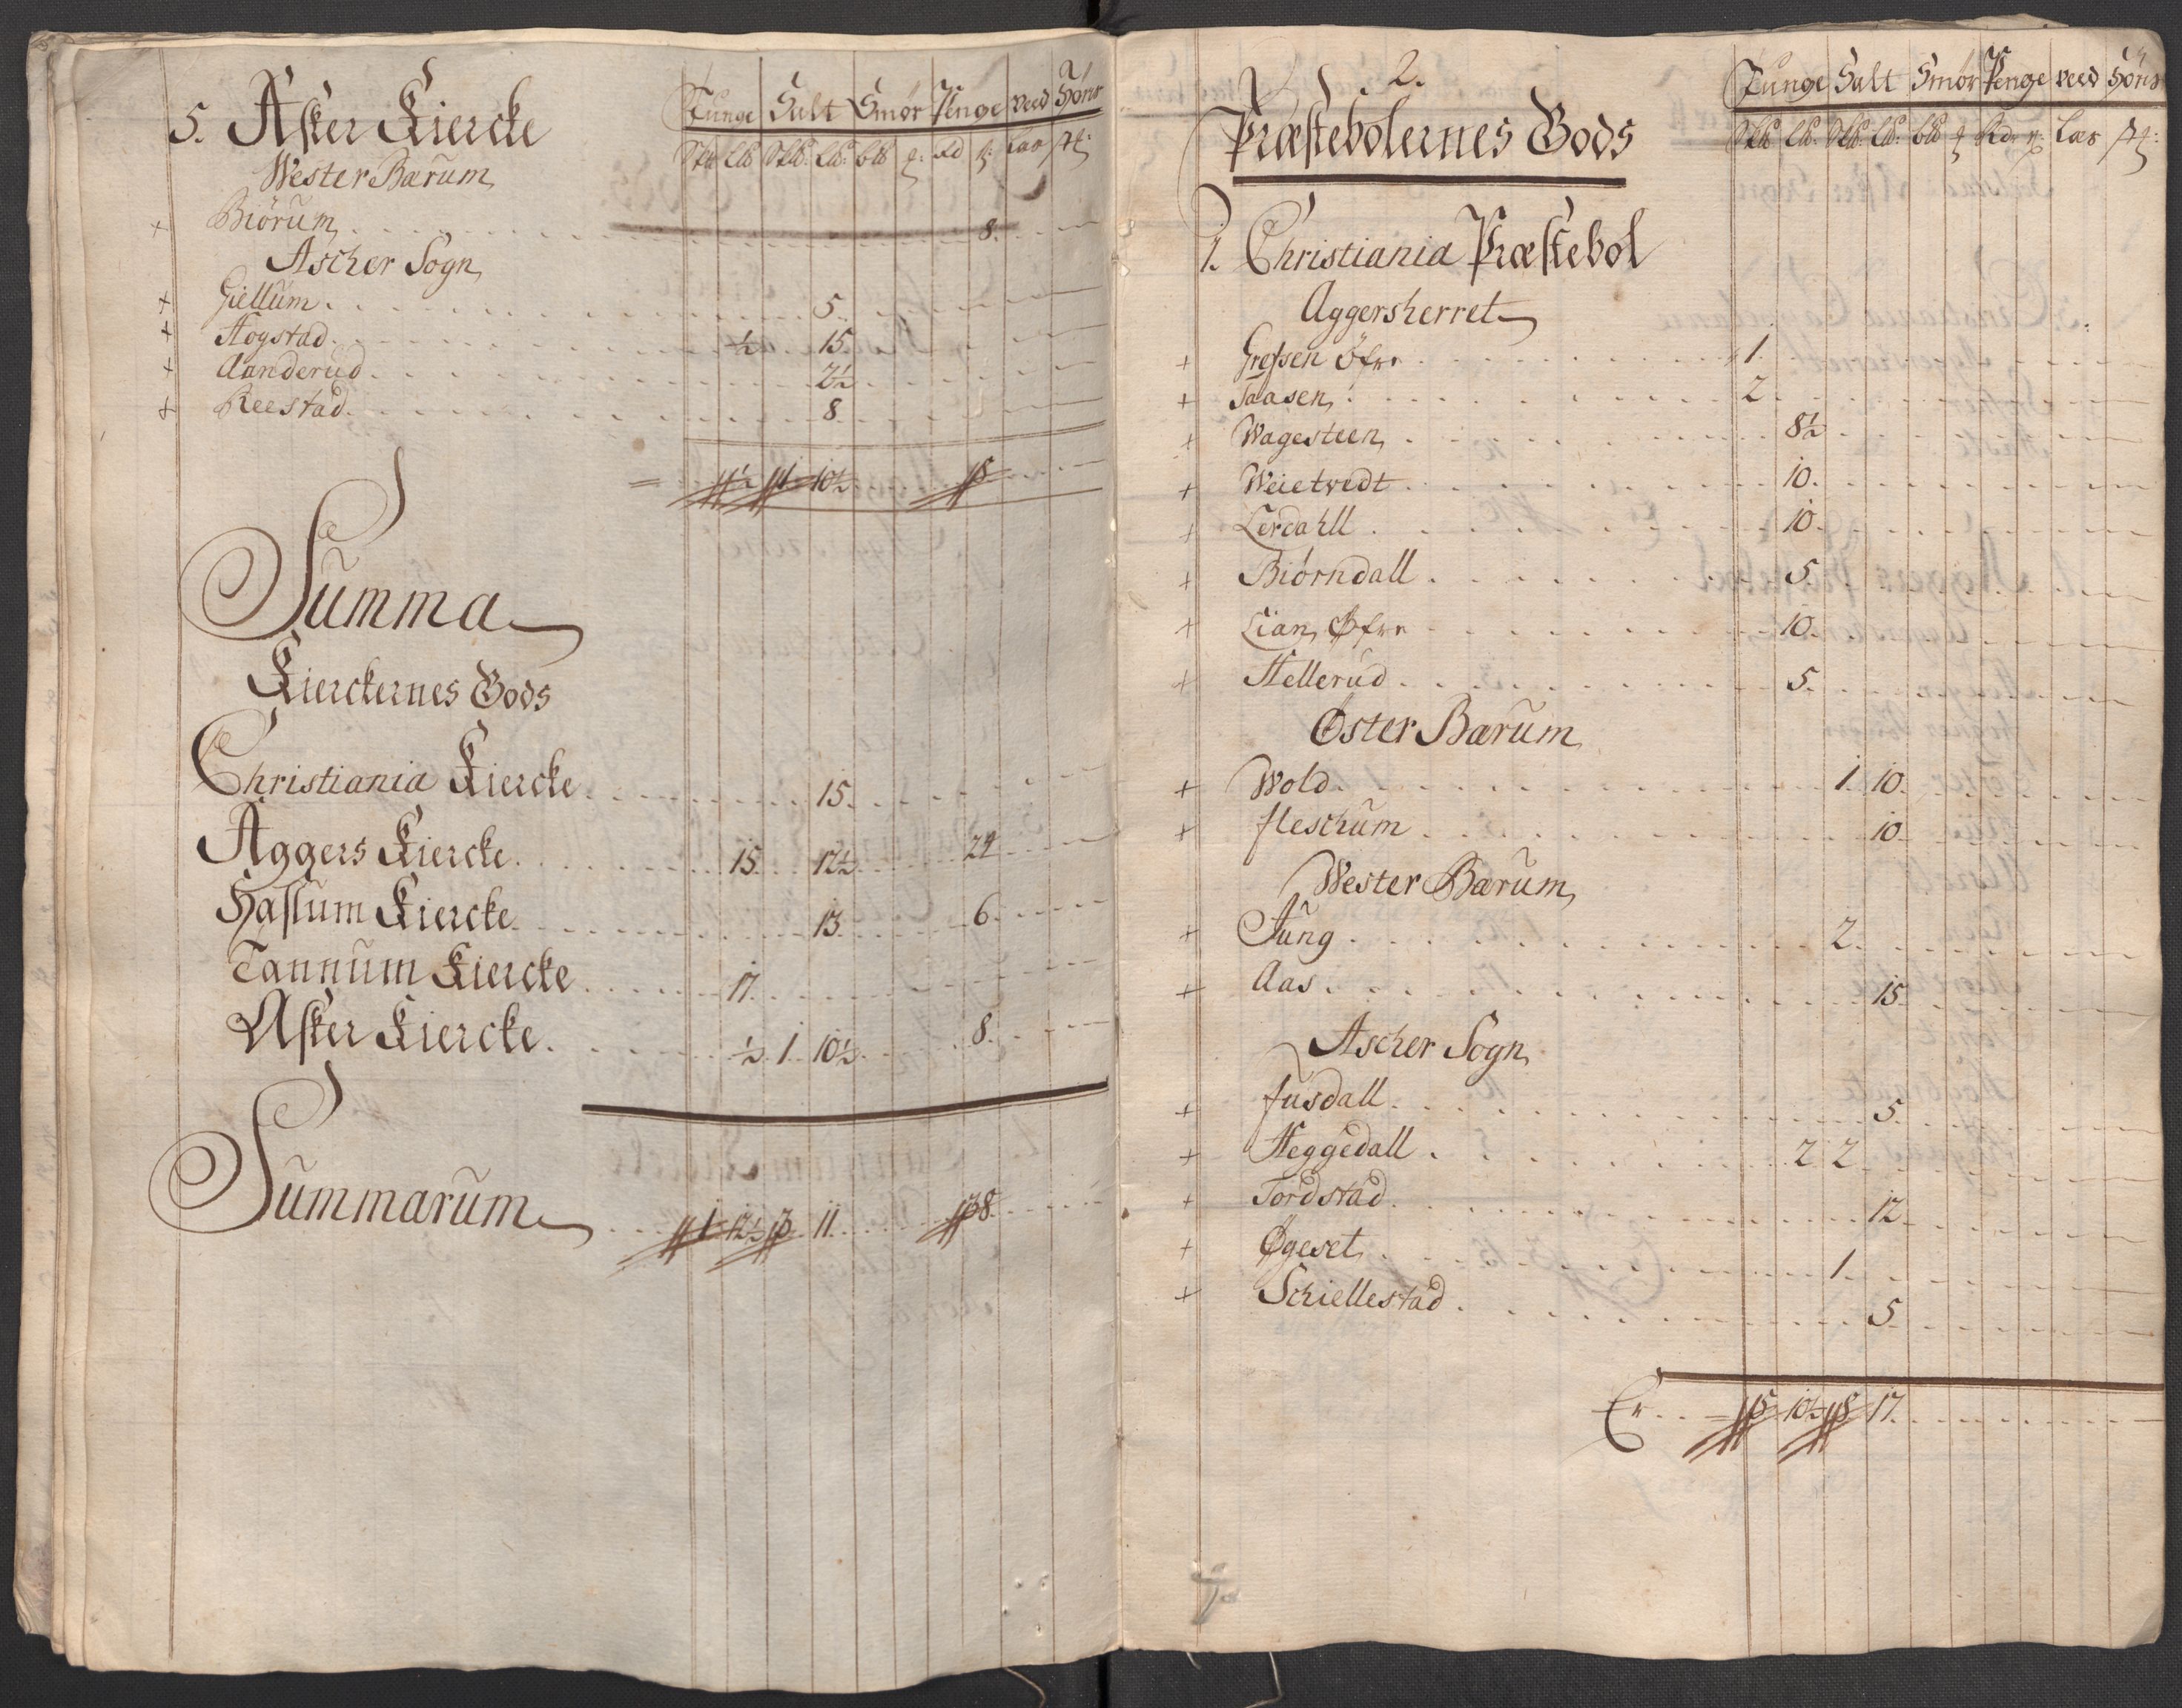 5. Asker Kiercke
Tunge Salt Smör Penge veed Höner
Wester Bærum
Biörum 8.
Ascher Sogn
Giellum 5
Hogstad ½ 15.
Aanderud 2½
Reestad 8
½ 1 10½ 8
Summa
Kierckernes Gods
Christiania Kiercke 15.
Aggers Kiercke 15. 12½ 24
Haslum Kiercke 13. 6.
Tannum Kiercke 17.
Asker Kiercke ½ 1 10½ 8.
Summarum 1 12½ 3 11. 38
2.
Tunge Salt Smör Penge veed Höns
Præstebolernes Gods
1. Christiania Præstebol
Aggersherret
Grefsen Öfre 1.
Taasen 2
Wagesteen 8½
Weietvedt 10.
Lerdahll 10.
Biörndall 5.
Lian Øfre 10.
Hellerud 5.
Øster Bærum
Wold 1. 10.
fleschum 10
Wester Bærum
Jung 2.
Aas 15.
Ascher Sogn
fusdall 5.
Heggedall 2 2
Tordstad 12
Øgeset 1.
Schiellestad 5
Er 5 10½ 8 17.